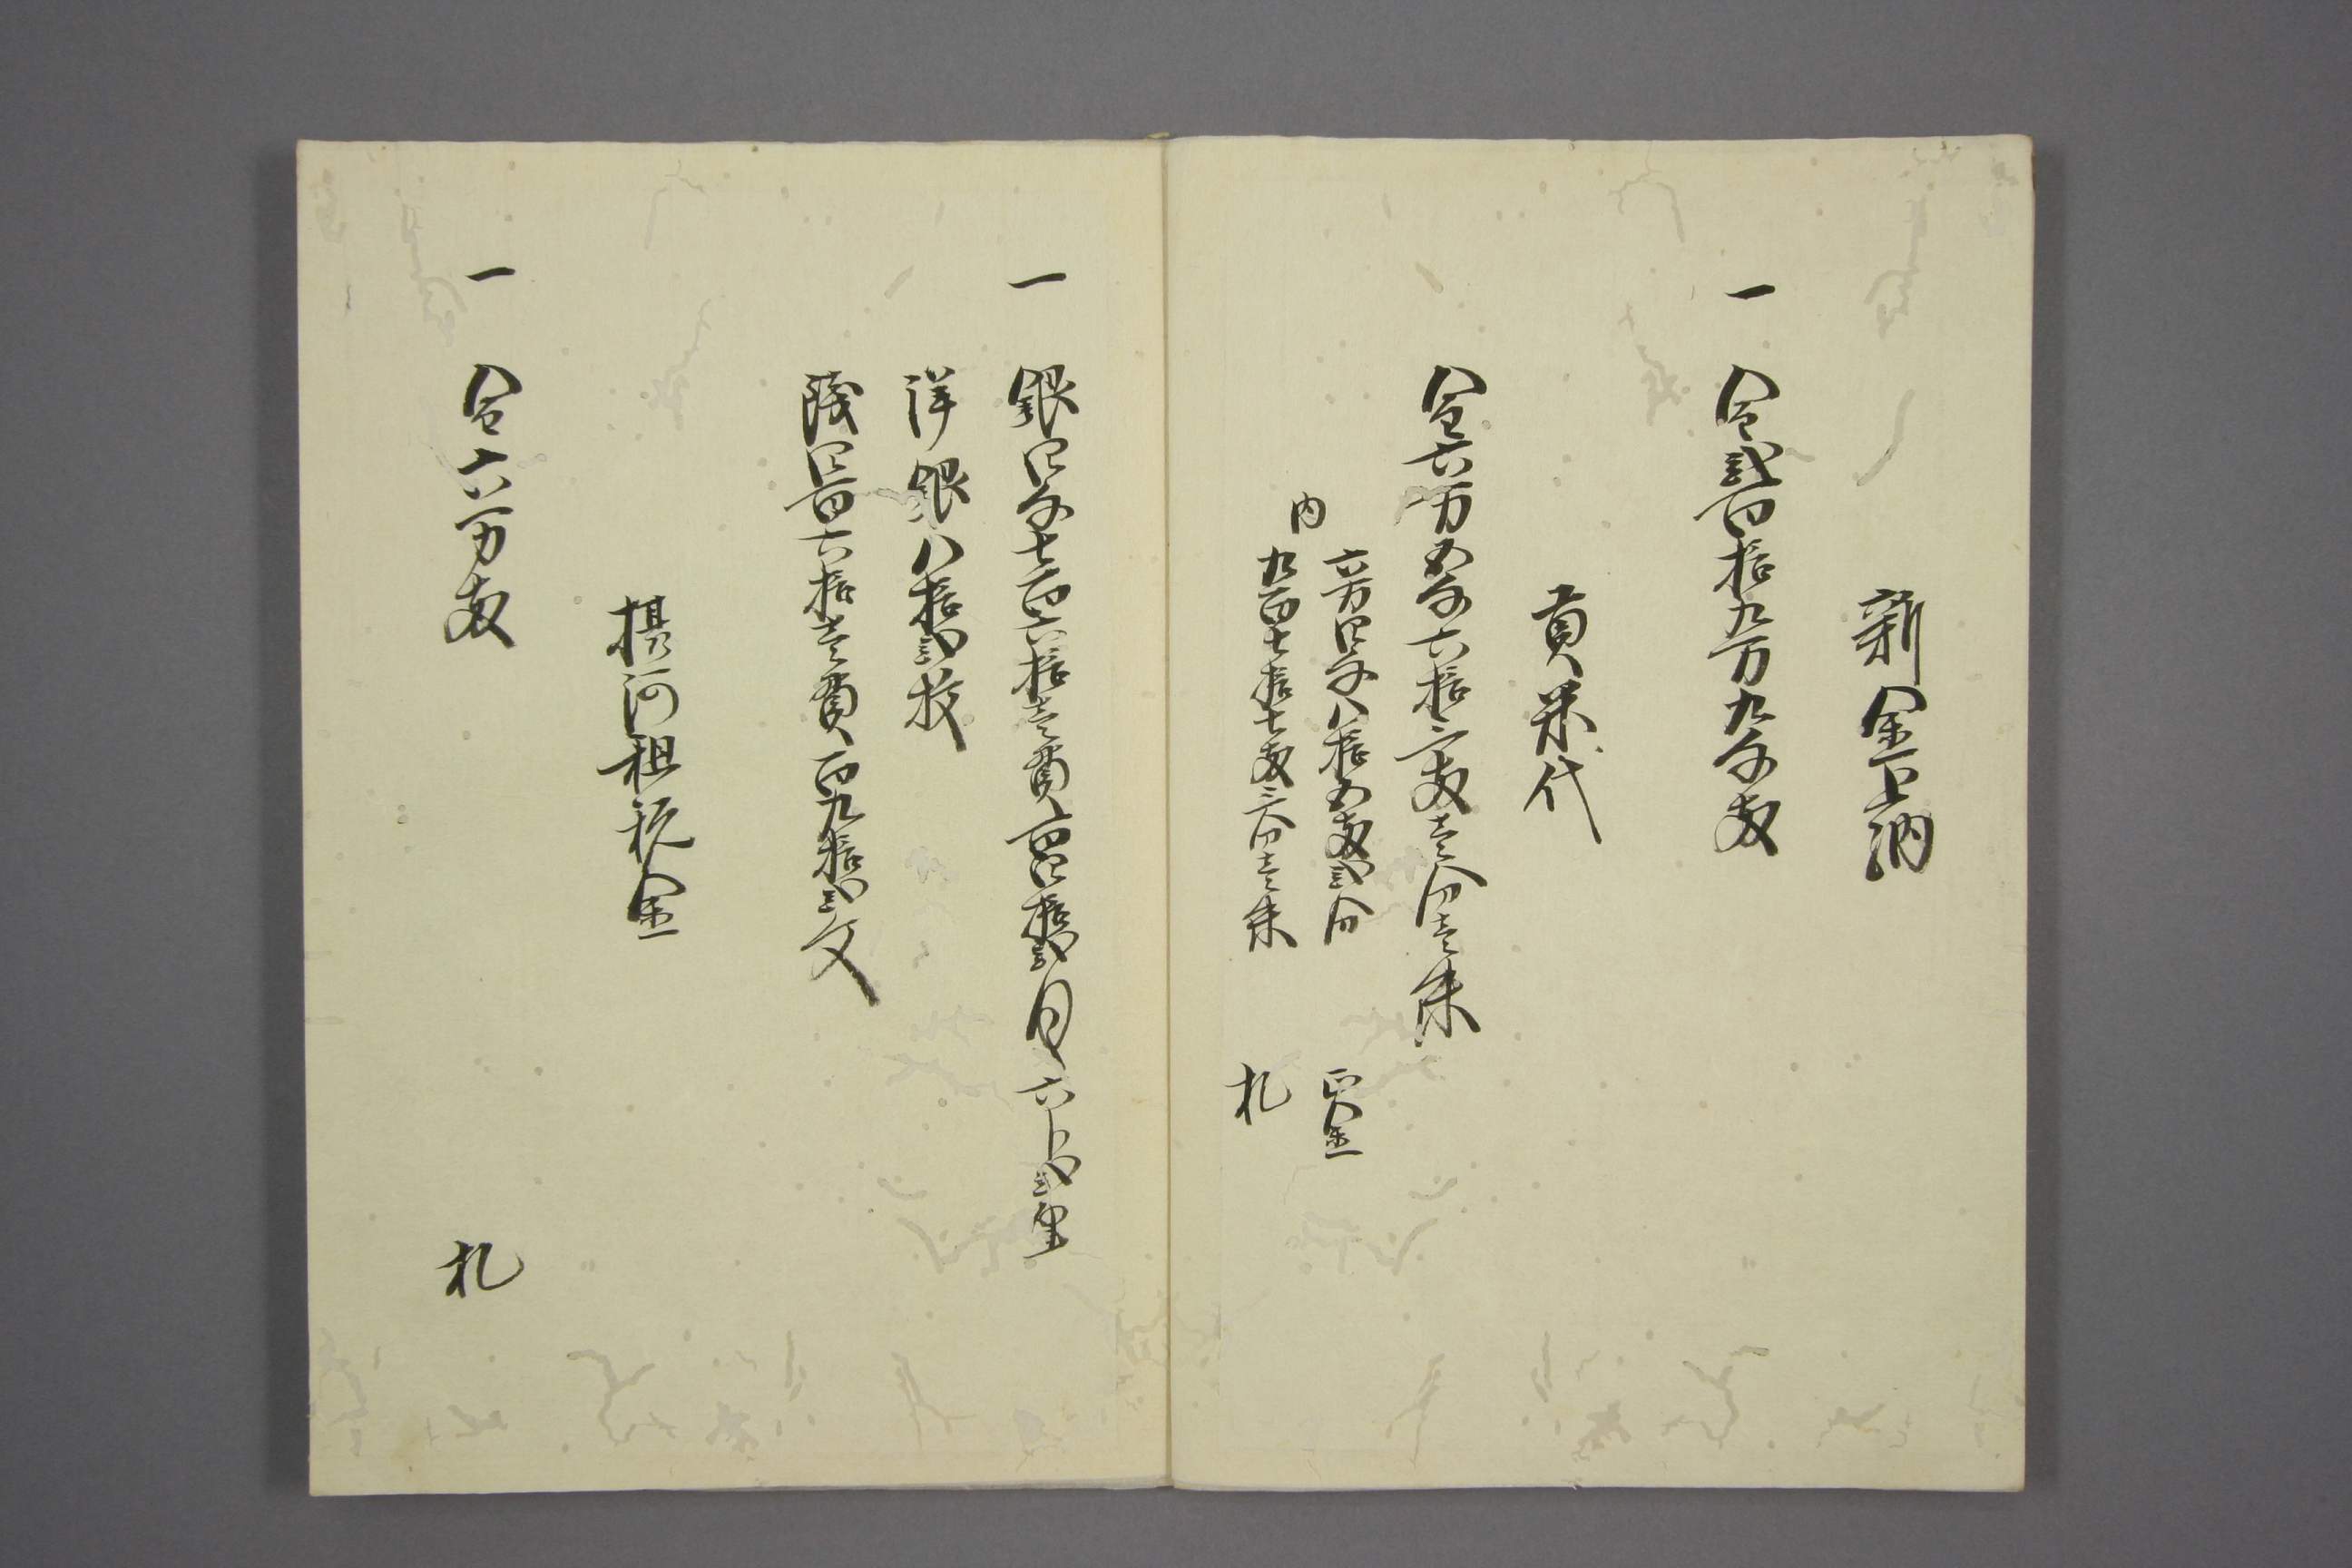 新金上納
一 金弐百拾九万九千両
貢米代
金六万五千六拾三両壱分壱朱
内 六万四千八拾五両弐分 正金
九百七拾七両三分壱朱 札
一 銀四千七百六拾壱貫百四拾弐目六分弐厘
洋銀八拾弐枚
銭四百六拾壱貫百九拾弐文
摂河租税金
一 金六万両 札